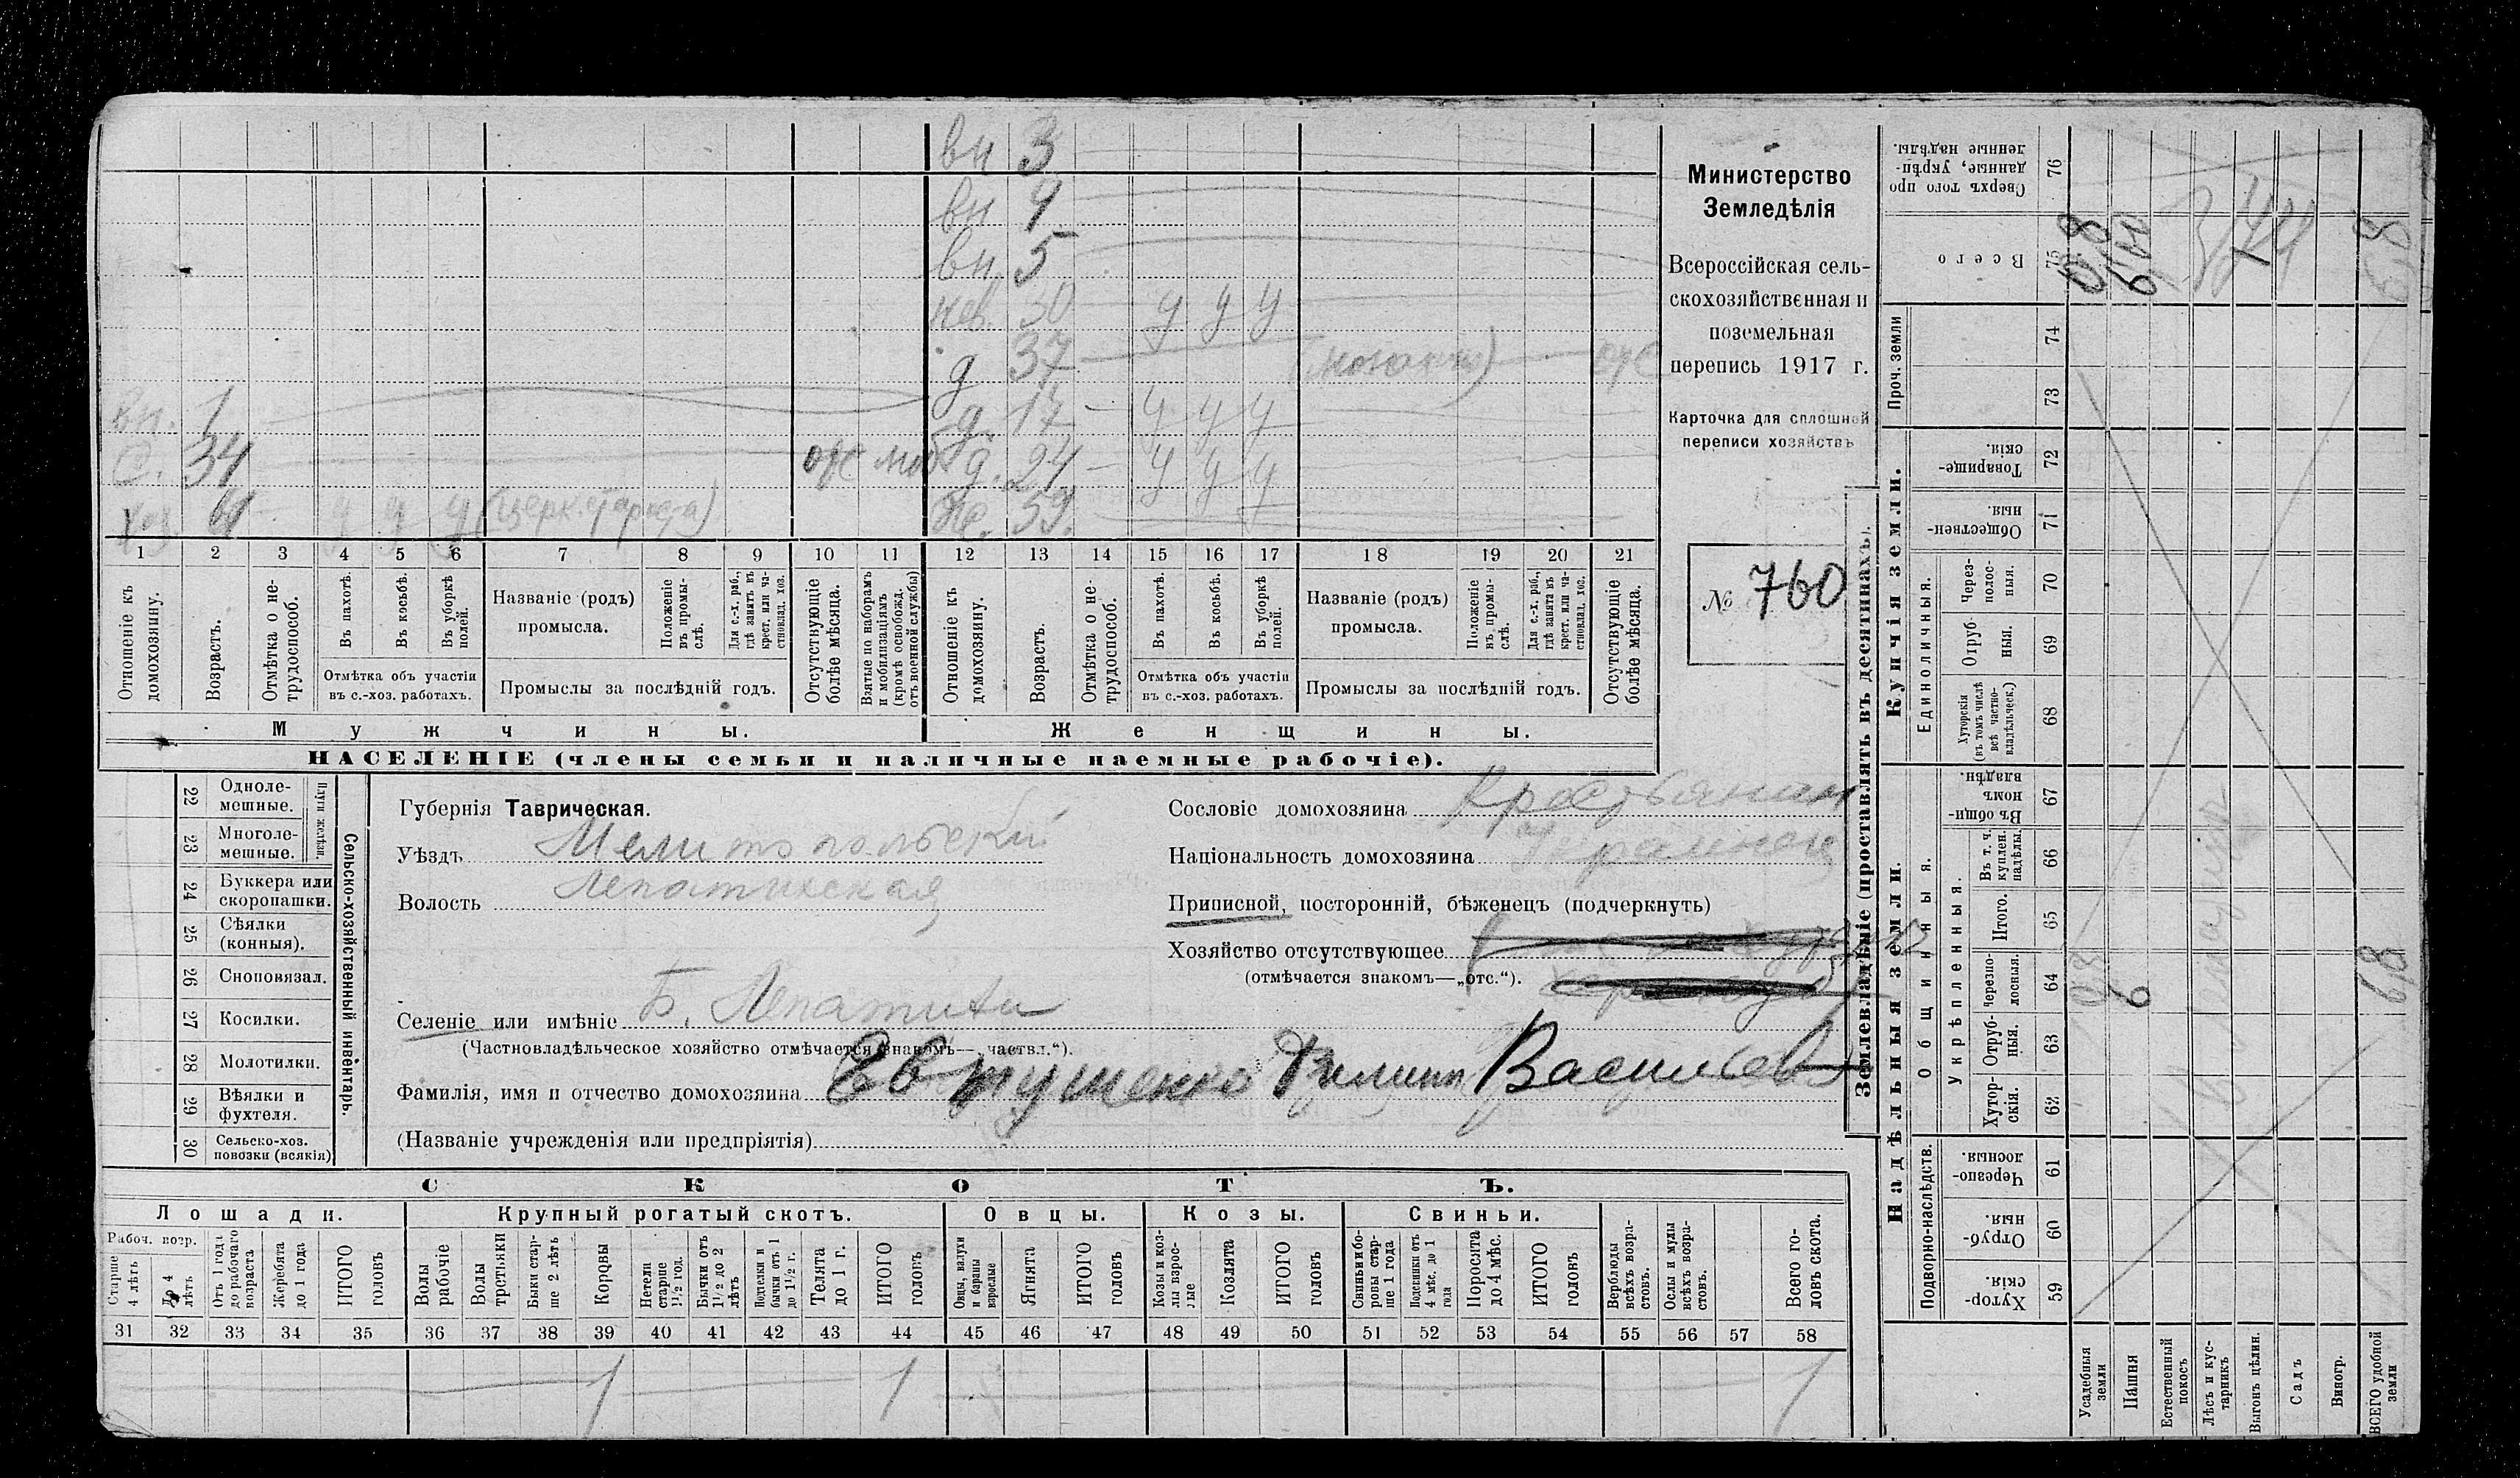 вн 3
вн 4
вн. 5
нев. 30 у у у
д 37
вн. 1 д. 17 — у у у
с. 34 отс моб д. 24 — у у у
хоз. 61 у у у (церк. староста) ж. 59.
1 2 3 4 5 6 7 8 9 10 11 12 13 14 15 16 17 18 19 20 21
Отношеніе къ домохозяину.
Возрастъ.
Отмѣтка о не-
трудоспособ.
Въ пахотѣ.
Въ косьбѣ.
Въ уборкѣ
полей.
Отмѣтка объ участіи
въ с.-хоз. работахъ.
Названіе (родъ)
промысла.
Положеніе
въ промы-
слѣ.
Для с.-х. раб.,
гдѣ занятъ въ
крест. или ча-
стновлад. хоз.
Промыслы за послѣдній годъ.
Отсутствующіе
болѣе мѣсяца.
Взятые по наборамъ
и мобилизаціямъ
(кромѣ освобожд.
отъ военной службы)
Отношеніе къ
домохозяину.
Возрастъ.
Отмѣтка о не-
трудоспособ.
Въ пахотѣ.
Въ косьбѣ.
Въ уборкѣ
полей.
Отмѣтка объ участіи
въ с.-хоз. работахъ.
Названіе (родъ)
промысла.
Положеніе
въ промы-
слѣ.
Для с.-х. раб.,
гдѣ занята въ
крест. или ча-
стновлад. хоз.
Промыслы за послѣдній годъ.
Отсутствующіе
болѣе мѣсяца.
Мужчины. Женщины.
НАСЕЛЕНІЕ (члены семьи и наличные наемные рабочіе).
Министерство
Земледѣлія
Всероссійская сель-
скохозяйственная и
поземельная
перепись 1917 г.
Карточка для сплошной
переписи хозяйствъ
№ 760
22 Одноле-
мешные.
23 Многоле-
мешные.
Плуги желѣзн.
24 Буккера или
скоропашки.
25 Сѣялки
(конныя).
26 Сноповязал.
27 Косилки.
28 Молотилки.
29 Вѣялки и
фухтеля.
30 Сельско-хоз.
повозки (всякія)
Сельско-хозяйственный инвентарь.
Губернія Таврическая.
Уѣздъ Мелитопольский
Волость Лепатихская
Селеніе или имѣніе Б. Лепатиха
(Частновладѣльческое хозяйство отмѣчается знакомъ—„частвл.“).
Фамилія, имя и отчество домохозяина Евтушенко Филипп Васильев
(Названіе учрежденія или предпріятія)
Сословіе домохозяина Крестьянин
Національность домохозяина Украинец
Приписной, посторонній, бѣженецъ (подчеркнуть)
Хозяйство отсутствующее
(отмѣчается знакомъ—„отс.“).
СКОТЪ.
Лошади. Крупный рогатый скотъ. Овцы. Козы. Свиньи.
Рабоч. возр.
Старше
4 лѣтъ
До 4
лѣтъ
Отъ 1 года
до рабочаго
возраста
Жеребята
до 1 года
ИТОГО
головъ
Волы
рабочіе
Волы
третьяки
Быки стар-
ше 2 лѣтъ
Коровы
Нетели
старше
1½ год.
Бычки отъ
1½ до 2
лѣтъ
Подтелки и
бычки отъ 1
до 1½ г.
Телята
до 1 г.
ИТОГО
головъ
Овцы, валухи
и бараны
взрослые
Ягнята
ИТОГО
головъ
Козы и коз-
лы взрос-
лые
Козлята
ИТОГО
головъ
Свиньи и бо-
ровы стар-
ше 1 года
Подсвинки отъ
4 мѣс. до 1
года
Поросята
до 4 мѣс.
ИТОГО
головъ
Верблюды
всѣхъ возра-
стовъ.
Ослы и мулы
всѣхъ возра-
стовъ.
Всего го-
ловъ скота.
31 32 33 34 35 36 37 38 39 40 41 42 43 44 45 46 47 48 49 50 51 52 53 54 55 56 57 58
1 1 1
Землевладѣніе (проставлять въ десятинахъ).
Надѣльныя земли. Купчія земли. Проч. земли
Подворно-наслѣдств.
Общинныя.
Укрѣпленныя.
Единоличныя.
Сверхъ того про
данные, укрѣп-
ленные надѣлы.
76
Всего
75
0,8
6
6,8
74
73
Товарище-
скія.
72
Обществен-
ныя.
71
Через-
полос-
ныя.
70
Отруб
ныя.
69
Хуторскія
(въ томъ числѣ
всѣ частно-
владѣльческ.)
68
Въ общи-
номъ
владѣн.
67
Въ т. ч.
куплен.
надѣлы.
66
Итого.
65
Черезпо-
лосныя.
64
0,8
6
6,8
Отруб-
ныя.
63
Хутор-
скія.
62
Черезпо-
лосныя.
61
Отруб-
ныя.
60
Хутор-
скія.
59
Усадебныя
земли
Пашня
Естественный
покосъ
Лѣсъ и кус-
тарникъ
Выгонъ цѣлин.
Садъ
Виногр.
ВСЕГО удобной
земли